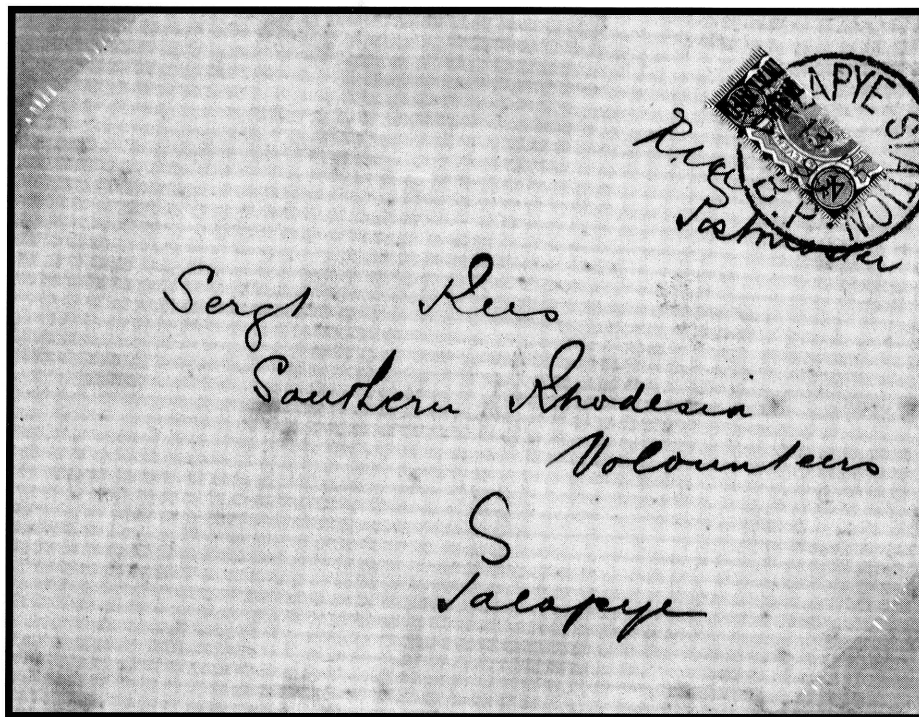 APYE STATION
B.P.
Postmaster
Sergt Rees
Southern Rhodesia
Volounteers
Palapye